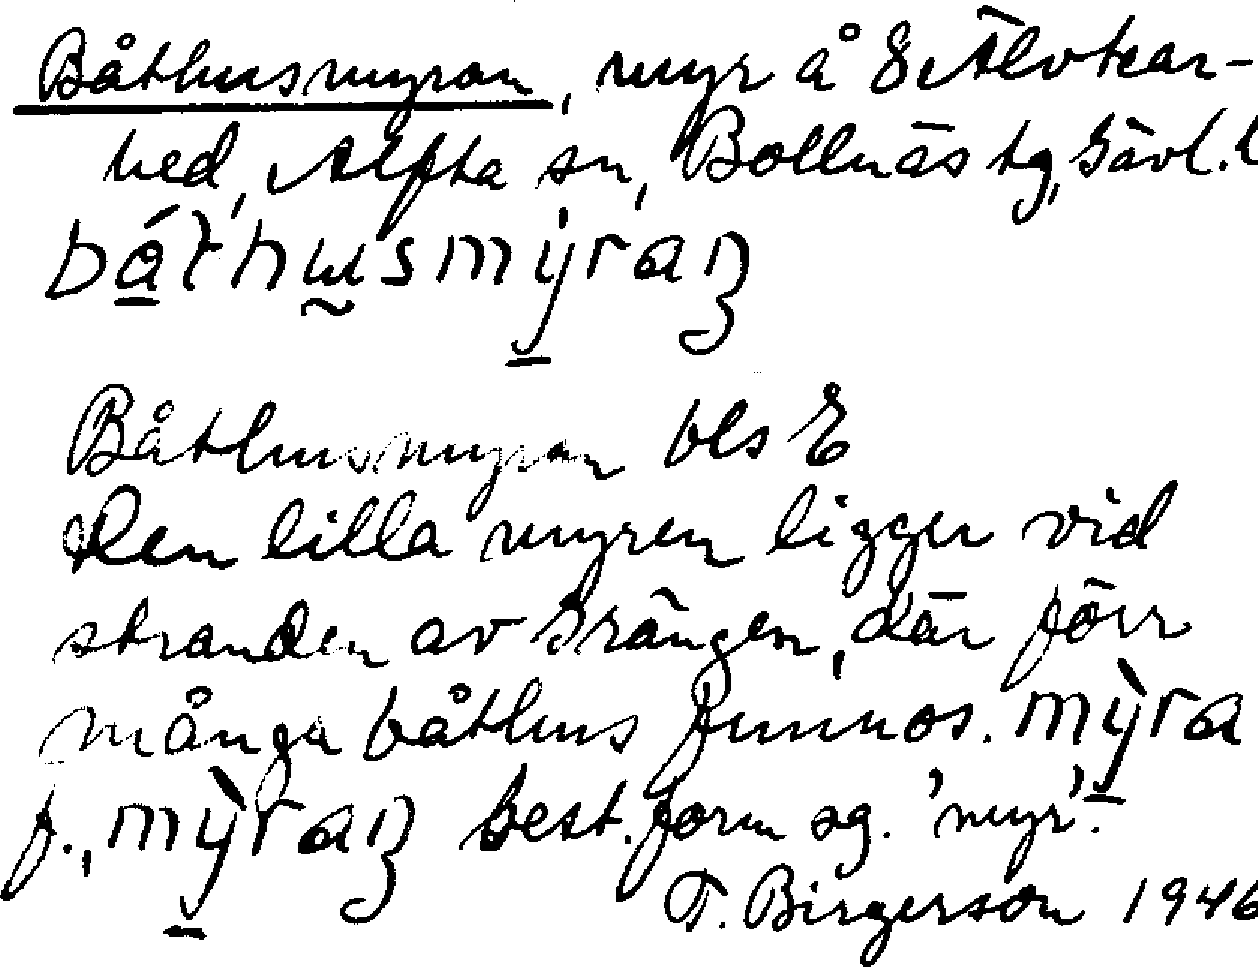 Båthusmyran, myr å S Älvkar-
hed, Alfta sn, Bollnäs tg, Gävl. l
båthusmyran
Båthusmyran bls E
Den lilla myren ligger vid
stranden av Grängen, där förr
många båthus funnos. myra
f., myran best. form sg. 'myr'.
T. Birgerson 1946